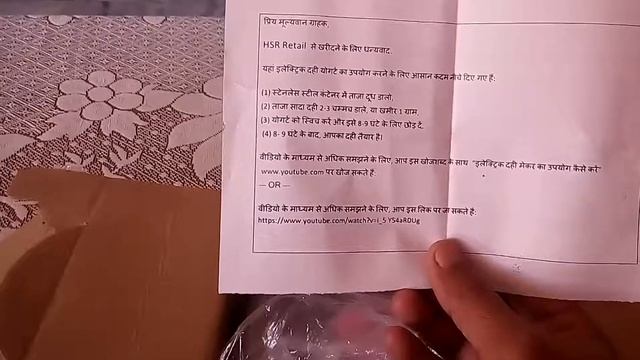 प्रिय मूल्यवान ग्राहक,
HSR Retail से खरीदने के लिए धन्यवाद.
यहां इलेक्ट्रिक दही योगर्ट का उपयोग करने के लिए आसान कदम नीचे दिए गए हैं:
(1) स्टेनलेस स्टील कंटेनर में ताजा दूध डालो,
(2) ताजा सादा दही 2-3 चम्मच डाले, या खमीर 1 ग्राम,
(3) योगर्ट को स्विच करें और इसे 8-9 घंटे के लिए छोड़ दें.
(4) 8- 9 घंटे के बाद, आपका दही तैयार है।
वीडियो के माध्यम से अधिक समझने के लिए, आप इस खोजशब्द के साथ "इलेक्ट्रिक दही मेकर का उपयोग कैसे करें"
www.youtube.com पर खोज सकते हैं
--- OR ---
वीडियो के माध्यम से अधिक समझने के लिए, आप इस लिंक पर जा सकते हैं: